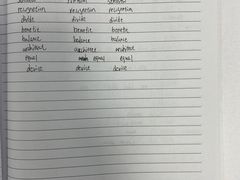 recognition recognition recognition
divide divide divide
benefit benefit benefit
balance balance balance
architect architect architect
equal equal equal
device device device